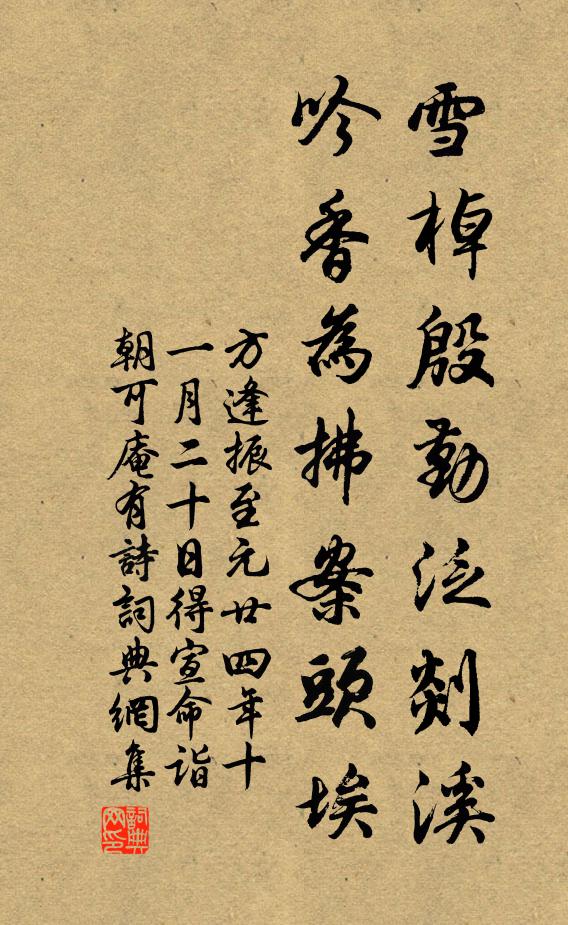 雪棹殷勤泛剡溪
吟香為拂案頭埃
方逢振至元廿四年十
一月二十日得宣命詣
朝可庵有詩詞典網集
詞典网印